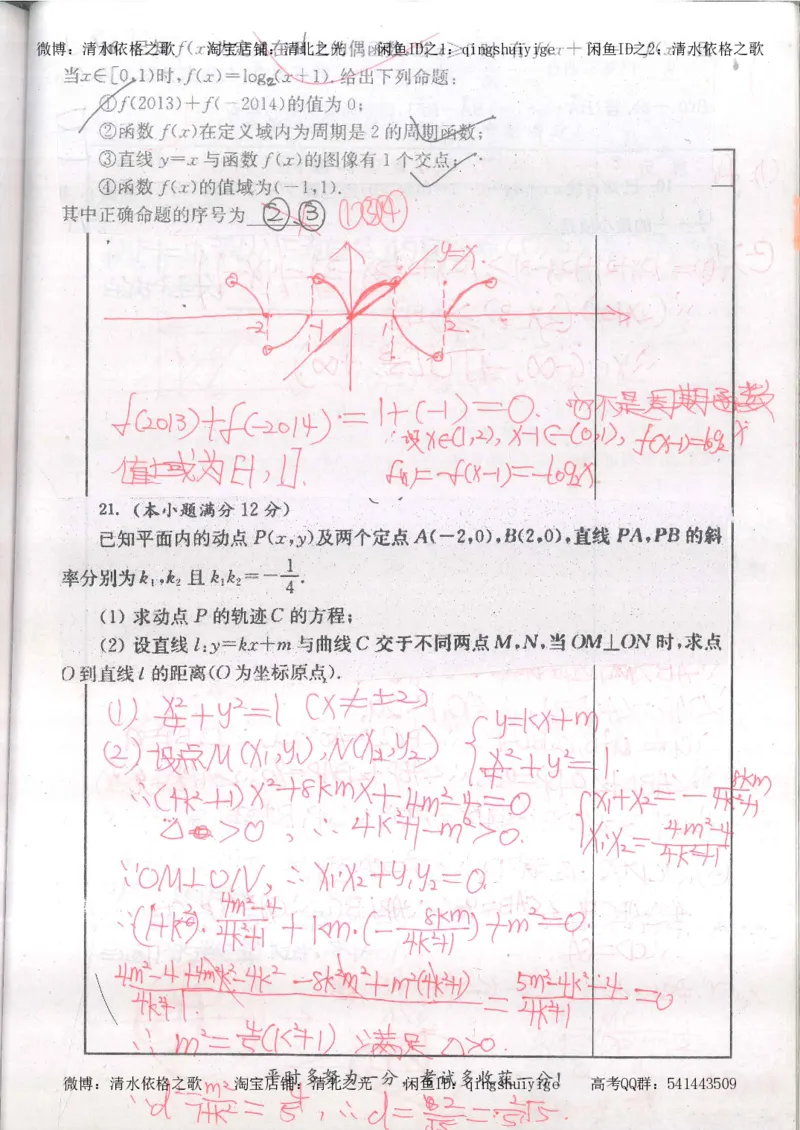 微博：清水依格之歌 淘宝店铺：清北之光 闲鱼ID之1：qingshuiyige 闲鱼ID之2：清水依格之歌
当x∈[0,1)时,f(x)=log₂(x+1).给出下列命题：
①f(2013)+f(-2014)的值为0;
②函数f(x)在定义域内为周期是2的周期函数;
③直线y=x与函数f(x)的图像有1个交点;
④函数f(x)的值域为(-1,1).
其中正确命题的序号为 ②、③ ①③④
y=x
-2 -1 1 2
f(2013)+f(-2014)=1+(-1)=0. 不是周期函数
设x∈(1,2), x-1∈(0,1), f(x-1)=log₂x
值域为[-1,1]. f(x)=-f(x-1)=-log₂x.
21. (本小题满分12分)
已知平面内的动点P(x,y)及两个定点A(-2,0),B(2,0),直线PA,PB的斜
率分别为k₁,k₂且k₁k₂=-1/4.
(1) 求动点P的轨迹C的方程;
(2) 设直线l:y=kx+m与曲线C交于不同两点M,N,当OM⊥ON时,求点
O到直线l的距离(O为坐标原点).
(1) x²/4+y²=1 (x≠±2)
(2) 设点M(x₁,y₁),N(x₂,y₂) {y=kx+m x²/4+y²=1
∴(4k²+1)x²+8kmx+4m²-4=0 {x₁+x₂=-8km/4k²+1
△>0, ∴4k²+1-m²>0. x₁·x₂=4m²-4/4k²+1
∵OM⊥ON, ∴x₁x₂+y₁y₂=0.
∴(1+k²)·4m²-4/4k²+1+km·(-8km/4k²+1)+m²=0.
4m²-4+4m²k²-4k²-8k²m²+m²(4k²+1)/4k²+1=5m²-4k²-4/4k²+1=0
∴m²=4/5(k²+1) ∴满足△>0.
平时多努力一分，考试多收获一分!
微博：清水依格之歌 淘宝店铺：清北之光 闲鱼ID：qingshuiyige 高考QQ群：541443509
∴d²=m²/1+k²=4/5, ∴d=2/√5=2/5√5.